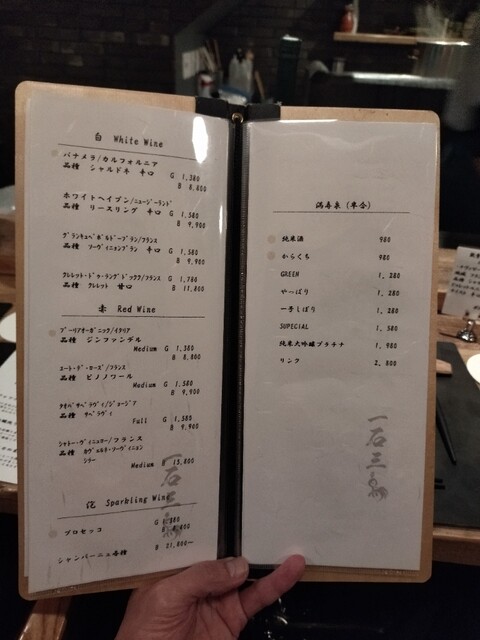 白 White Wine
パナメラ/カルフォルニア
品種 シャルドネ 辛口 G 1,380
B 8,800
ホワイトヘイブン/ニュージーランド
品種 リースリング 辛口 G 1,580
B 9,900
グランキュベ ボルドーブラン/フランス
品種 ソーヴィニョンブラン 辛口 G 1,580
B 9,900
クレレット・ドゥ・ラングドック/フランス G 1,780
品種 クレレット 甘口 B 11,800
赤 Red Wine
プーリアオーガニック/イタリア
品種 ジンファンデル
Medium G 1,380
B 8,800
品種 ピノノワール
Medium G 1,580
B 9,900
品種 サペラヴィ
Full G 1,580
B 9,900
シャトー・ヴィニョロー/フランス
品種 カヴェルネ・ソーヴィニョン
シラー
Medium B 13,800
泡 Sparkling Wine
プロセッコ
シャンパーニュ各種 B 21,800〜
満寿泉 (1合)
純米酒 980
からくち 980
GREEN 1,280
やっぱり 1,280
一号しぼり 1,280
SUPECIAL 1,580
純米大吟醸プラチナ 1,980
リンク 2,800
一石三鳥